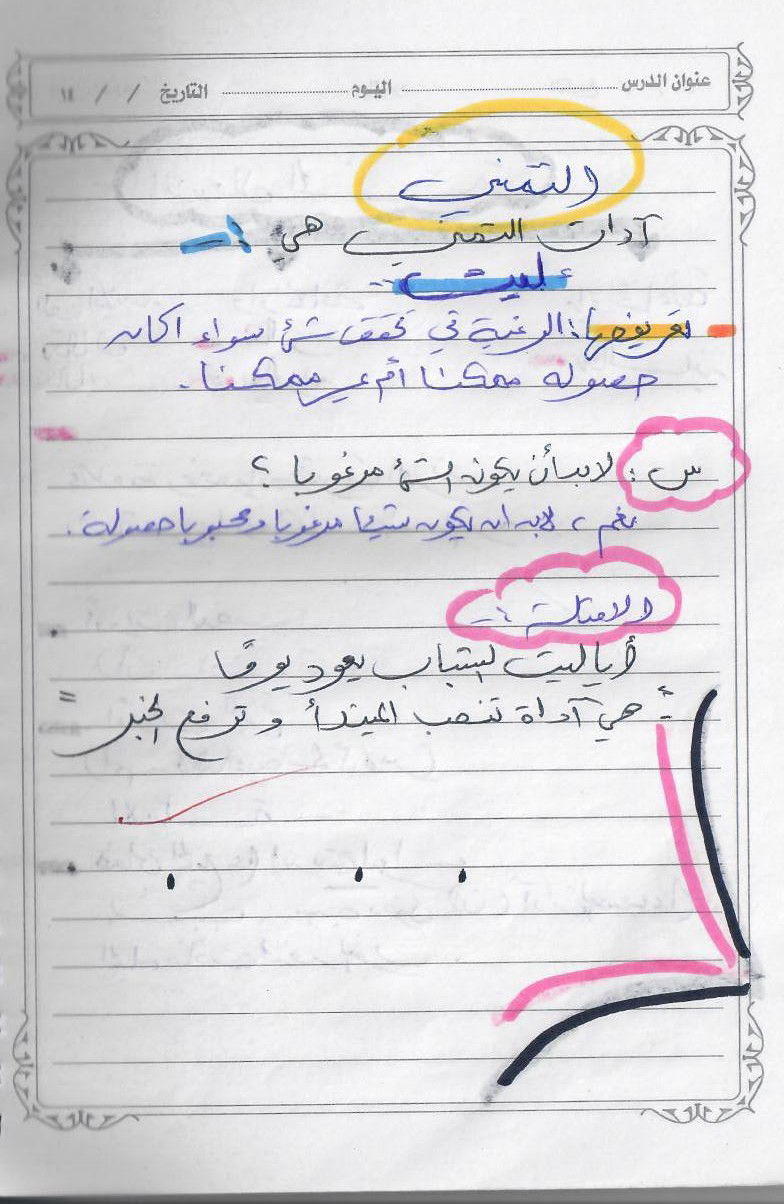 عنوان الدرس ........ اليوم ........ التاريخ / / ١٤
التمني
آدات التمني هي :-
لييت :-
تعريفها : الرغبة في تحقق شئ سواء اكان
حصوله ممكنا أم غير ممكنا .
س : لابدأن يكون الشئ مرغوبا ؟
نعم ، لابد ان يكون شيئا مرغوبا ومحبوبا حصولة .
الامثلة :-
أياليت لشباب يعود يومًا
: هي آداة تنصب المبتدأ و ترفع الخبر =